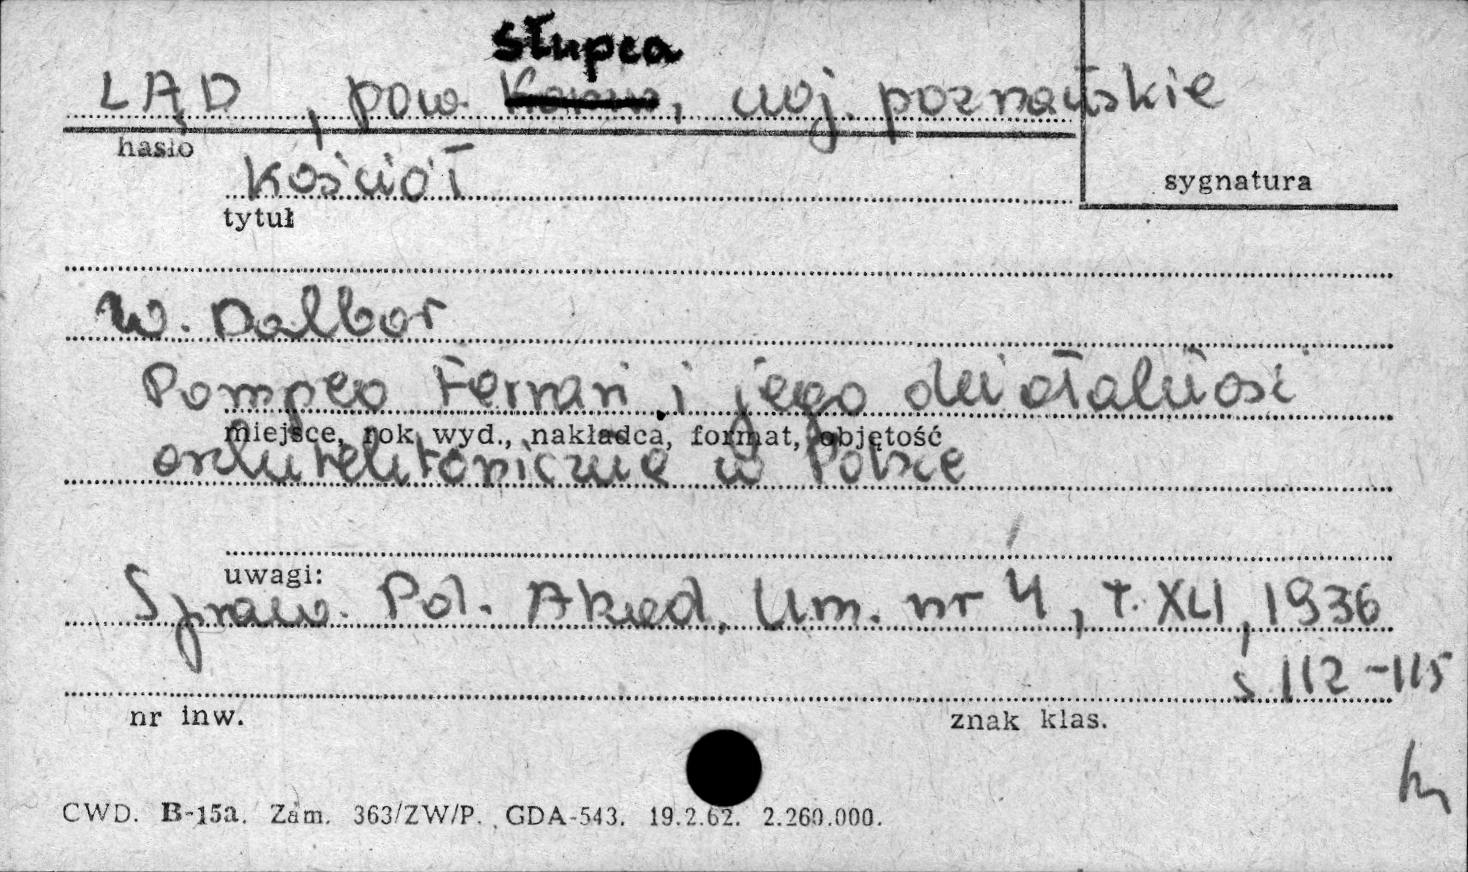 Słupca
LĄD, pow. Konin, woj. poznańskie
hasło
sygnatura
Kościół
tytuł
W. Dalbor
Pompeo Ferrari i jego działalność
miejsce, rok wyd., nakładca, format, objętość
architektoniczna w Polsce
uwagi:
Spraw. Pol. Akad. Um. nr 4, t. XLI, 1936
s 112-115
nr inw.
znak klas.
CWD. B-15a. Zam. 363/ZW/P. GDA-543. 19.2.62. 2.260.000.